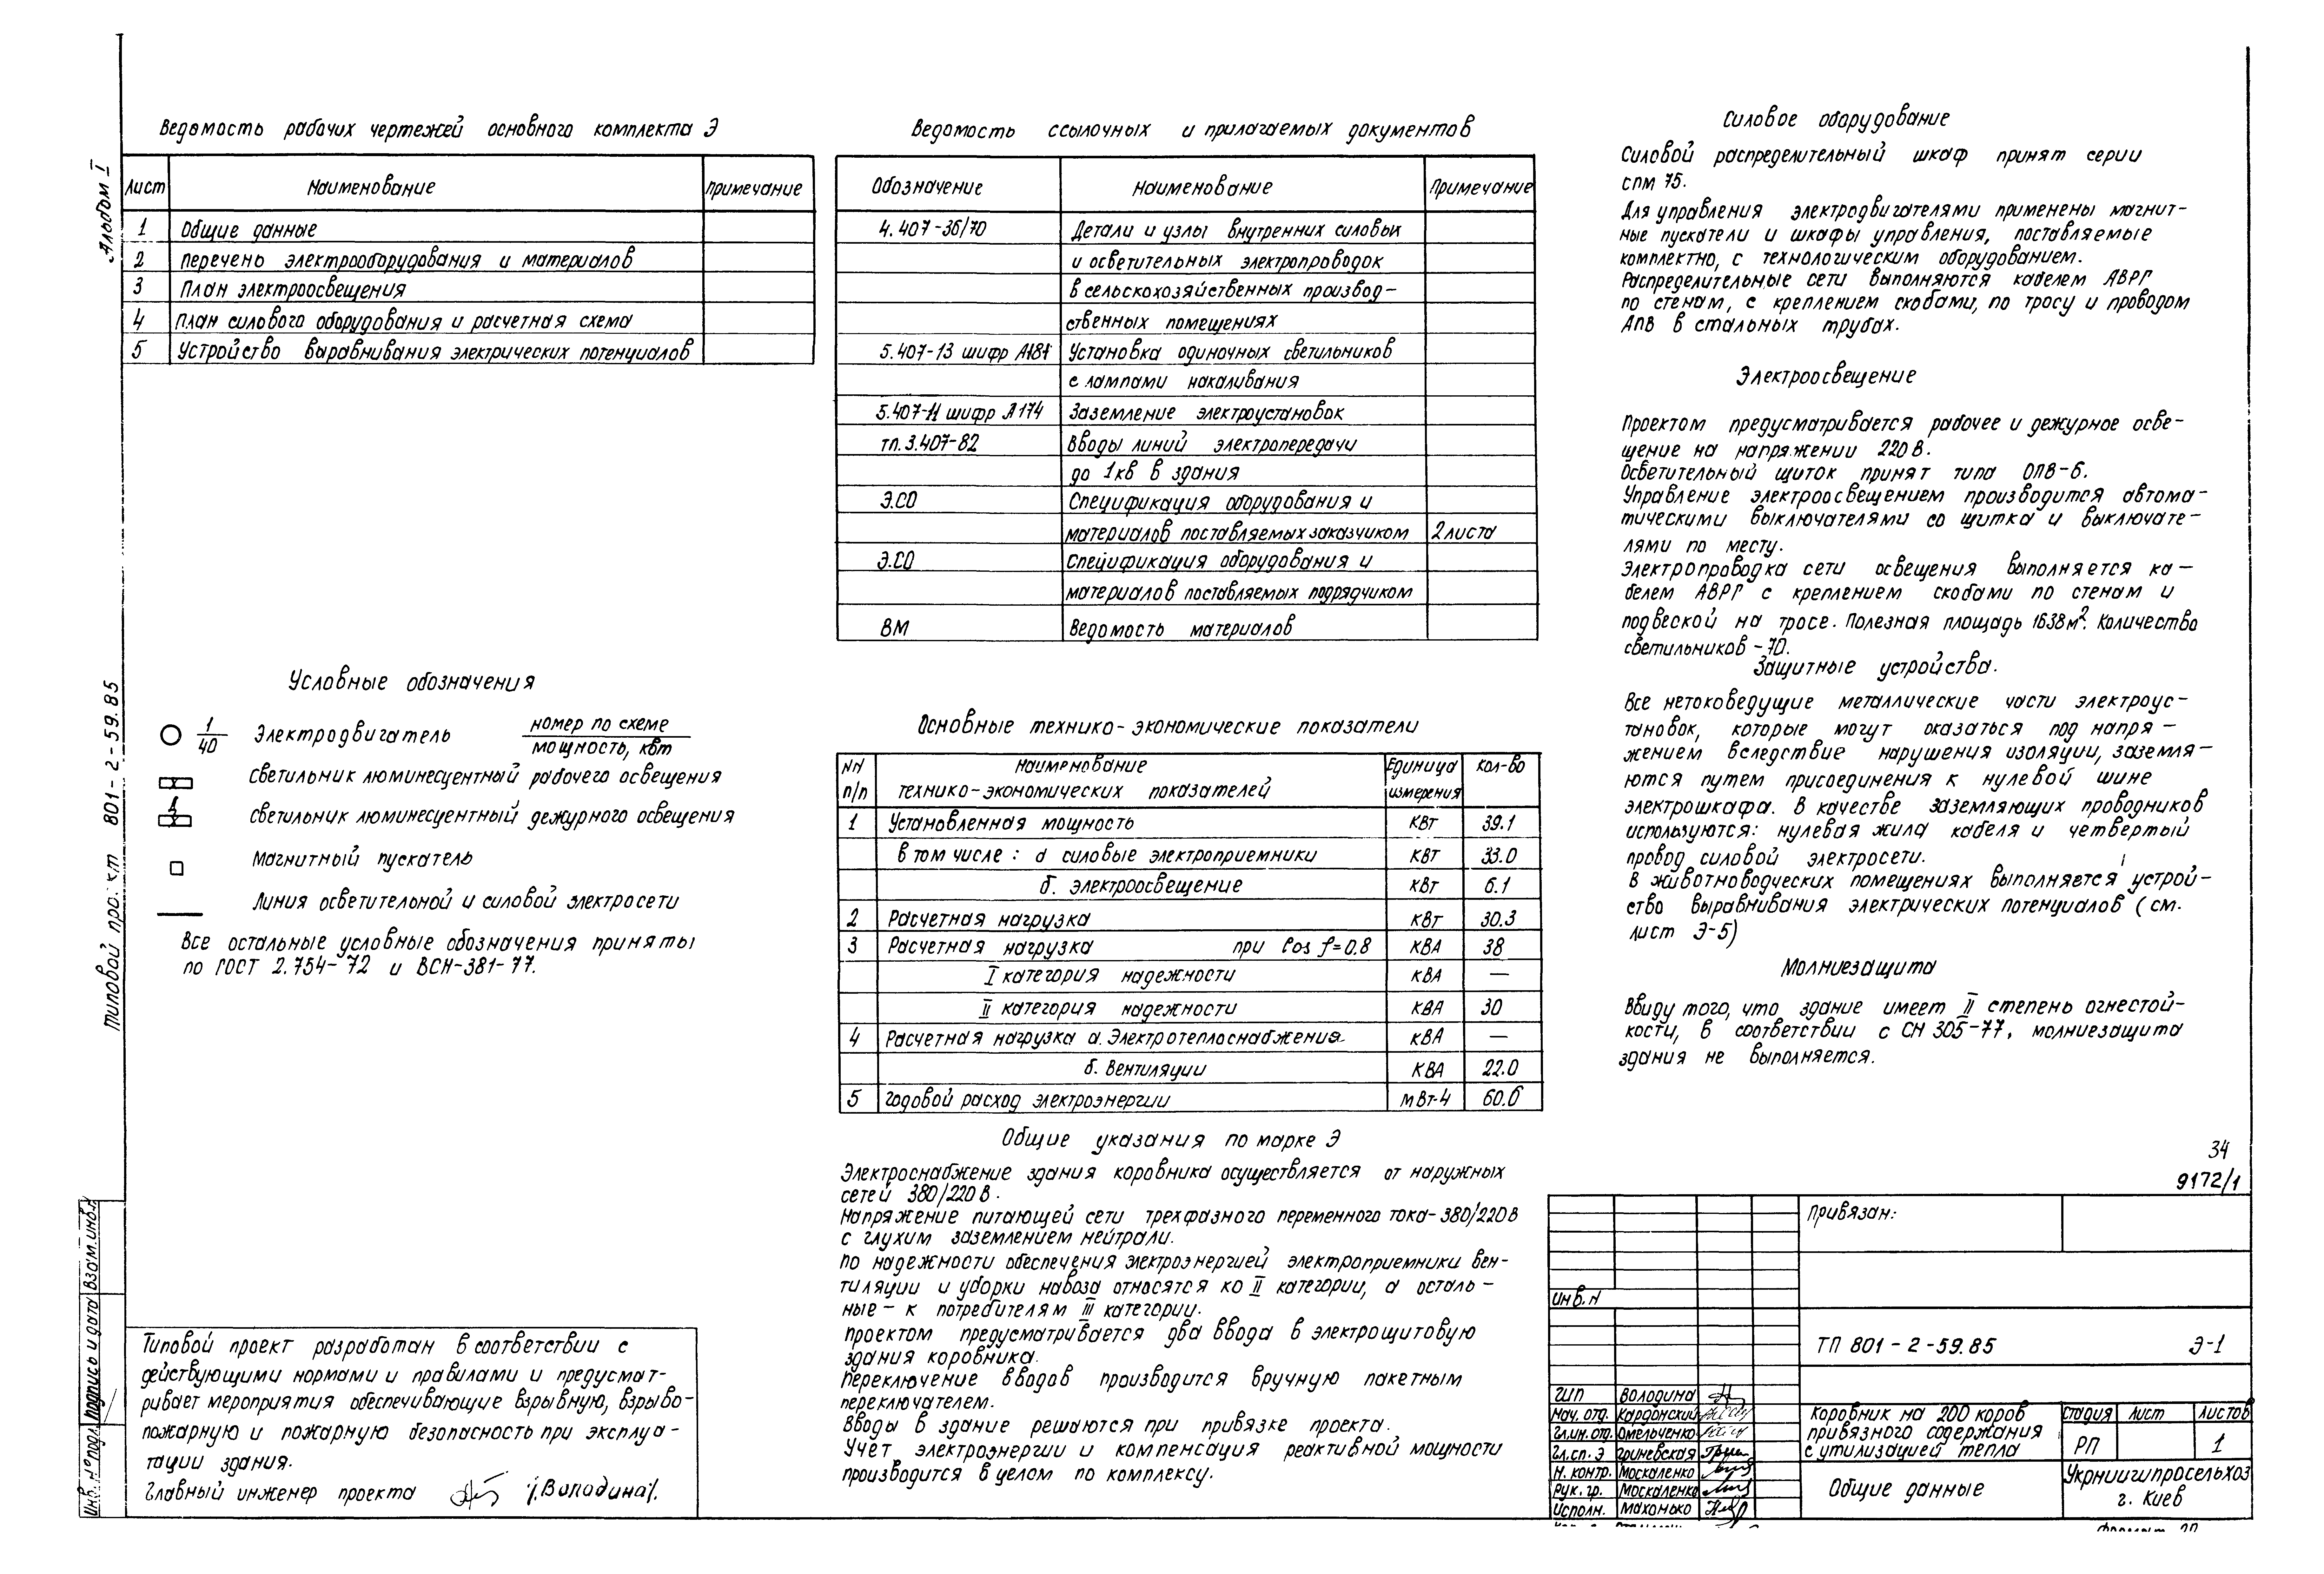 Альбом I
Типовой проект 801-2-59.85
Ведомость рабочих чертежей основного комплекта Э
Лист Наименование Примечание
1 Общие данные
2 Перечень электрооборудования и материалов
3 План электроосвещения
4 План силового оборудования и расчетная схема
5 Устройство выравнивания электрических потенциалов
Условные обозначения
1/40 Электродвигатель номер по схеме / мощность, квт
Светильник люминесцентный рабочего освещения
Светильник люминесцентный дежурного освещения
Магнитный пускатель
Линия осветительной и силовой электросети
Все остальные условные обозначения приняты
по ГОСТ 2.754-72 и ВСН-381-77.
Типовой проект разработан в соответствии с
действующими нормами и правилами и предусмат-
ривает мероприятия обеспечивающие взрывную, взрыво-
пожарную и пожарную безопасность при эксплуа-
тации здания.
Главный инженер проекта /Володина/.
Инв. № подл. Подпись и дата Взам. инв. №
Ведомость ссылочных и прилагаемых документов
Обозначение Наименование Примечание
4.407-36/70 Детали и узлы внутренних силовых
и осветительных электропроводок
в сельскохозяйственных производ-
ственных помещениях
5.407-13 шифр А181 Установка одиночных светильников
с лампами накаливания
5.407-11 шифр А174 Заземление электроустановок
тп. 3.407-82 Вводы линий электропередачи
до 1кв в здания
Э.СО Спецификация оборудования и
материалов поставляемых заказчиком 2 листа
Э.СО Спецификация оборудования и
материалов поставляемых подрядчиком
ВМ Ведомость материалов
Основные технико-экономические показатели
NN п/п Наименование технико-экономических показателей Единица измерения Кол-во
1 Установленная мощность КВт 39.1
в том числе: а силовые электроприемники КВт 33.0
б. электроосвещение КВт 6.1
2 Расчетная нагрузка КВт 30.3
3 Расчетная нагрузка при Cos f=0.8 КВА 38
I категория надежности КВА —
II категория надежности КВА 30
4 Расчетная нагрузка а. Электротеплоснабжения КВА —
б. Вентиляции КВА 22.0
5 Годовой расход электроэнергии мВт-ч 60.6
Общие указания по марке Э
Электроснабжение здания коровника осуществляется от наружных
сетей 380/220 В.
Напряжение питающей сети трехфазного переменного тока-380/220В
с глухим заземлением нейтрали.
По надежности обеспечения электроэнергией электроприемники вен-
тиляции и уборки навоза относятся ко II категории, а осталь-
ные-к потребителям III категории.
Проектом предусматривается два ввода в электрощитовую
здания коровника.
Переключение вводов производится вручную пакетным
переключателем.
Вводы в здание решаются при привязке проекта.
Учет электроэнергии и компенсация реактивной мощности
производится в целом по комплексу.
Силовое оборудование
Силовой распределительный шкаф принят серии
СПМ 75.
Для управления электродвигателями применены магнит-
ные пускатели и шкафы управления, поставляемые
комплектно, с технологическим оборудованием.
Распределительные сети выполняются кабелем АВРГ
по стенам, с креплением скобами, по тросу и проводом
АПВ в стальных трубах.
Электроосвещение
Проектом предусматривается рабочее и дежурное осве-
щение на напряжении 220 В.
Осветительный щиток принят типа ОПВ-6.
Управление электроосвещением производится автома-
тическими выключателями со щитка и выключате-
лями по месту.
Электропроводка сети освещения выполняется ка-
белем АВРГ с креплением скобами по стенам и
подвеской на тросе. Полезная площадь 1638м². Количество
светильников-70.
Защитные устройства.
Все нетоковедущие металлические части электроус-
тановок, которые могут оказаться под напря-
жением вследствие нарушения изоляции, заземля-
ются путем присоединения к нулевой шине
электрошкафа. В качестве заземляющих проводников
используются: нулевая жила кабеля и четвертый
провод силовой электросети.
В животноводческих помещениях выполняется устрой-
ство выравнивания электрических потенциалов (см.
лист Э-5)
Молниезащита
Ввиду того, что здание имеет II степень огнестой-
кости, в соответствии с СН 305-77, молниезащита
здания не выполняется.
34
9172/1
Привязан:
Инв. N
ТП 801-2-59.85 Э-1
ГИП Володина
Нач. отд. Кардонский
Гл.ин. отд. Омельченко
Гл. сп. Э Гриневская
Н. контр. Москаленко
Рук. гр. Москаленко
Исполн. Махонько
Коровник на 200 коров
привязного содержания
с утилизацией тепла
Стадия Лист Листов
РП 1
Общие данные
Укрниигипросельхоз
г. Киев